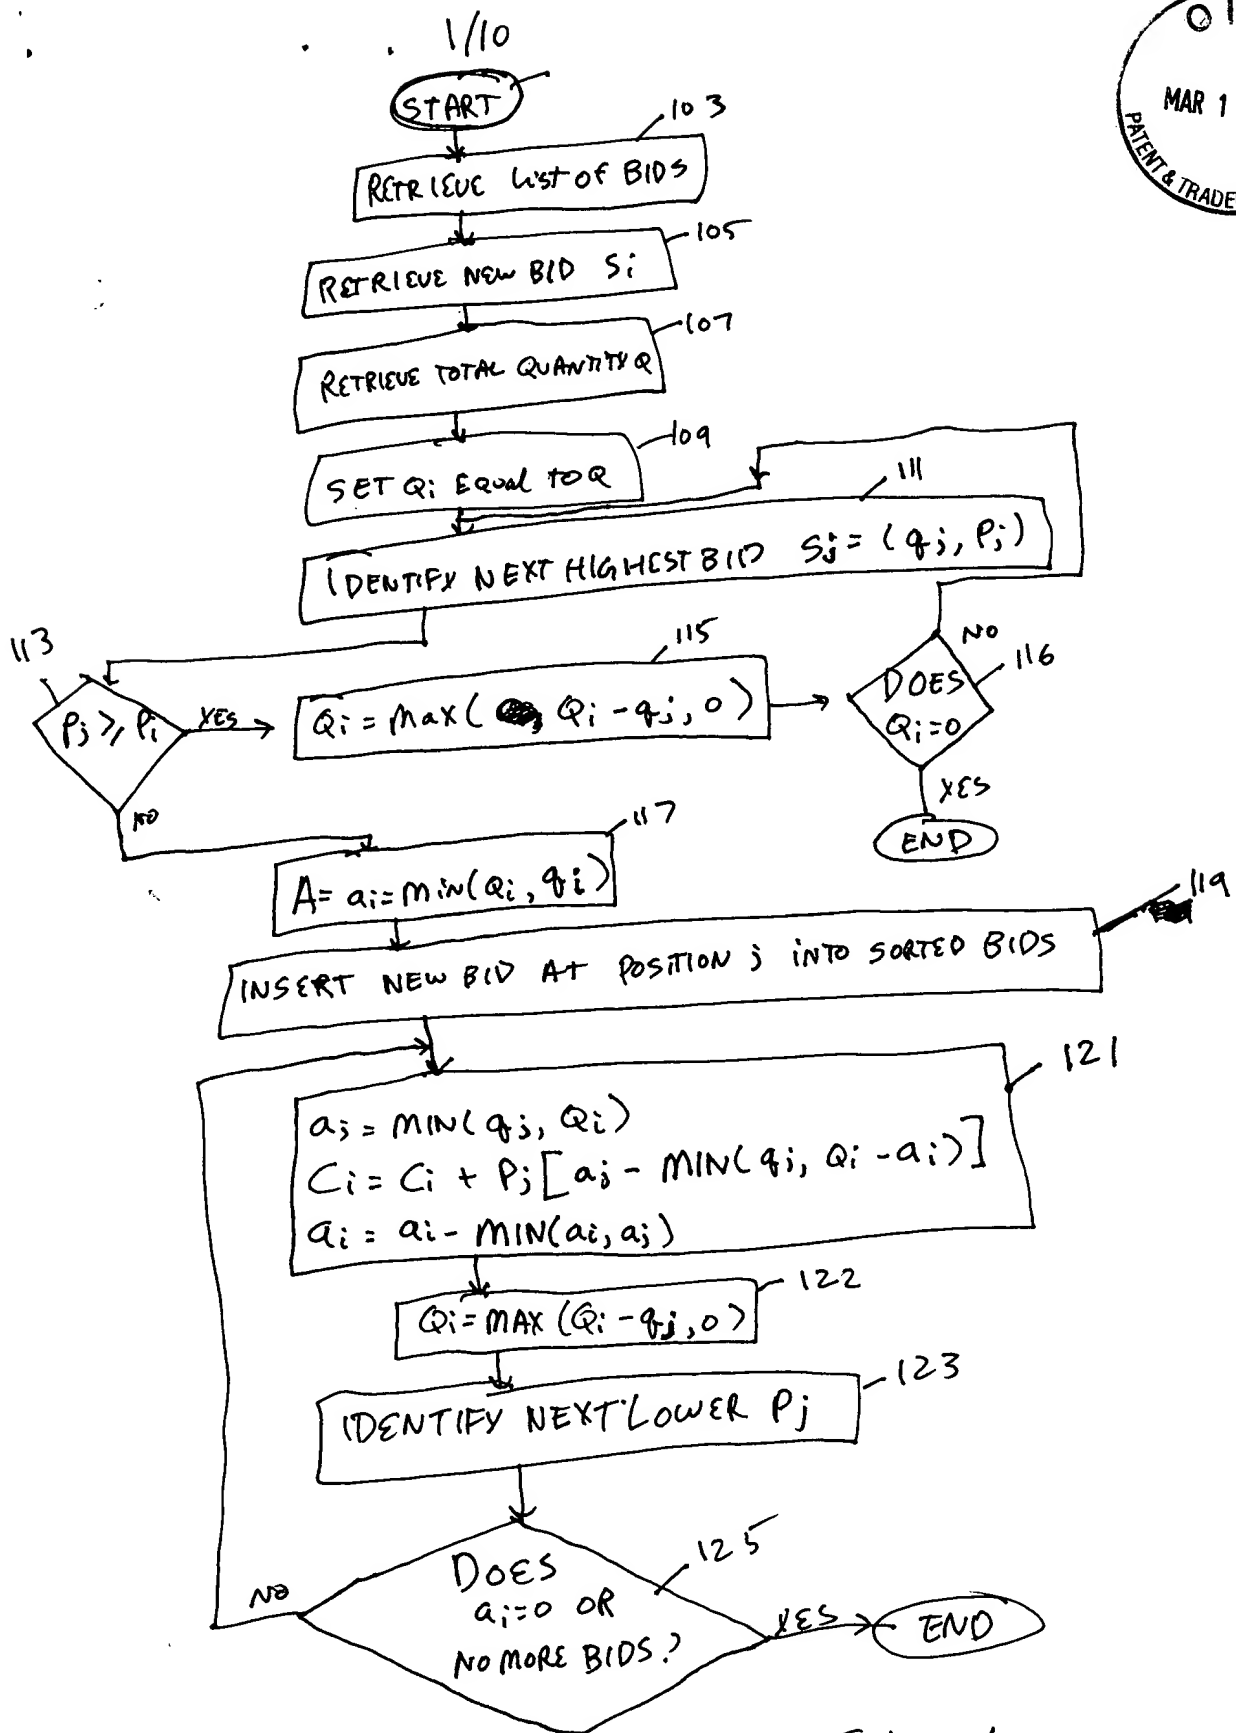 1/10
START
103
RETRIEVE List of BIDS
105
RETRIEVE NEW BID Si
107
RETRIEVE TOTAL QUANTITY Q
109
SET Qi Equal to Q
111
IDENTIFY NEXT HIGHEST BID Sj = (qj, Pj)
113
Pj ≥ Pi
YES
115
Qi = Max( Qi - qj, 0 )
NO
116
DOES
Qi=0
YES
END
NO
117
A= ai= min(Qi, qi)
119
INSERT NEW BID At POSITION j iNTO SORTED BIDS
121
aj = MIN(qj, Qi)
Ci = Ci + Pj [aj - MIN(qj, Qi - ai)]
ai = ai - MIN(ai, aj)
122
Qi = MAX (Qi - qj, 0)
123
IDENTIFY NEXT LOWER Pj
125
DOES
ai=0 OR
NO MORE BIDS?
NO
YES
END
MAR 1
PATENT & TRADE